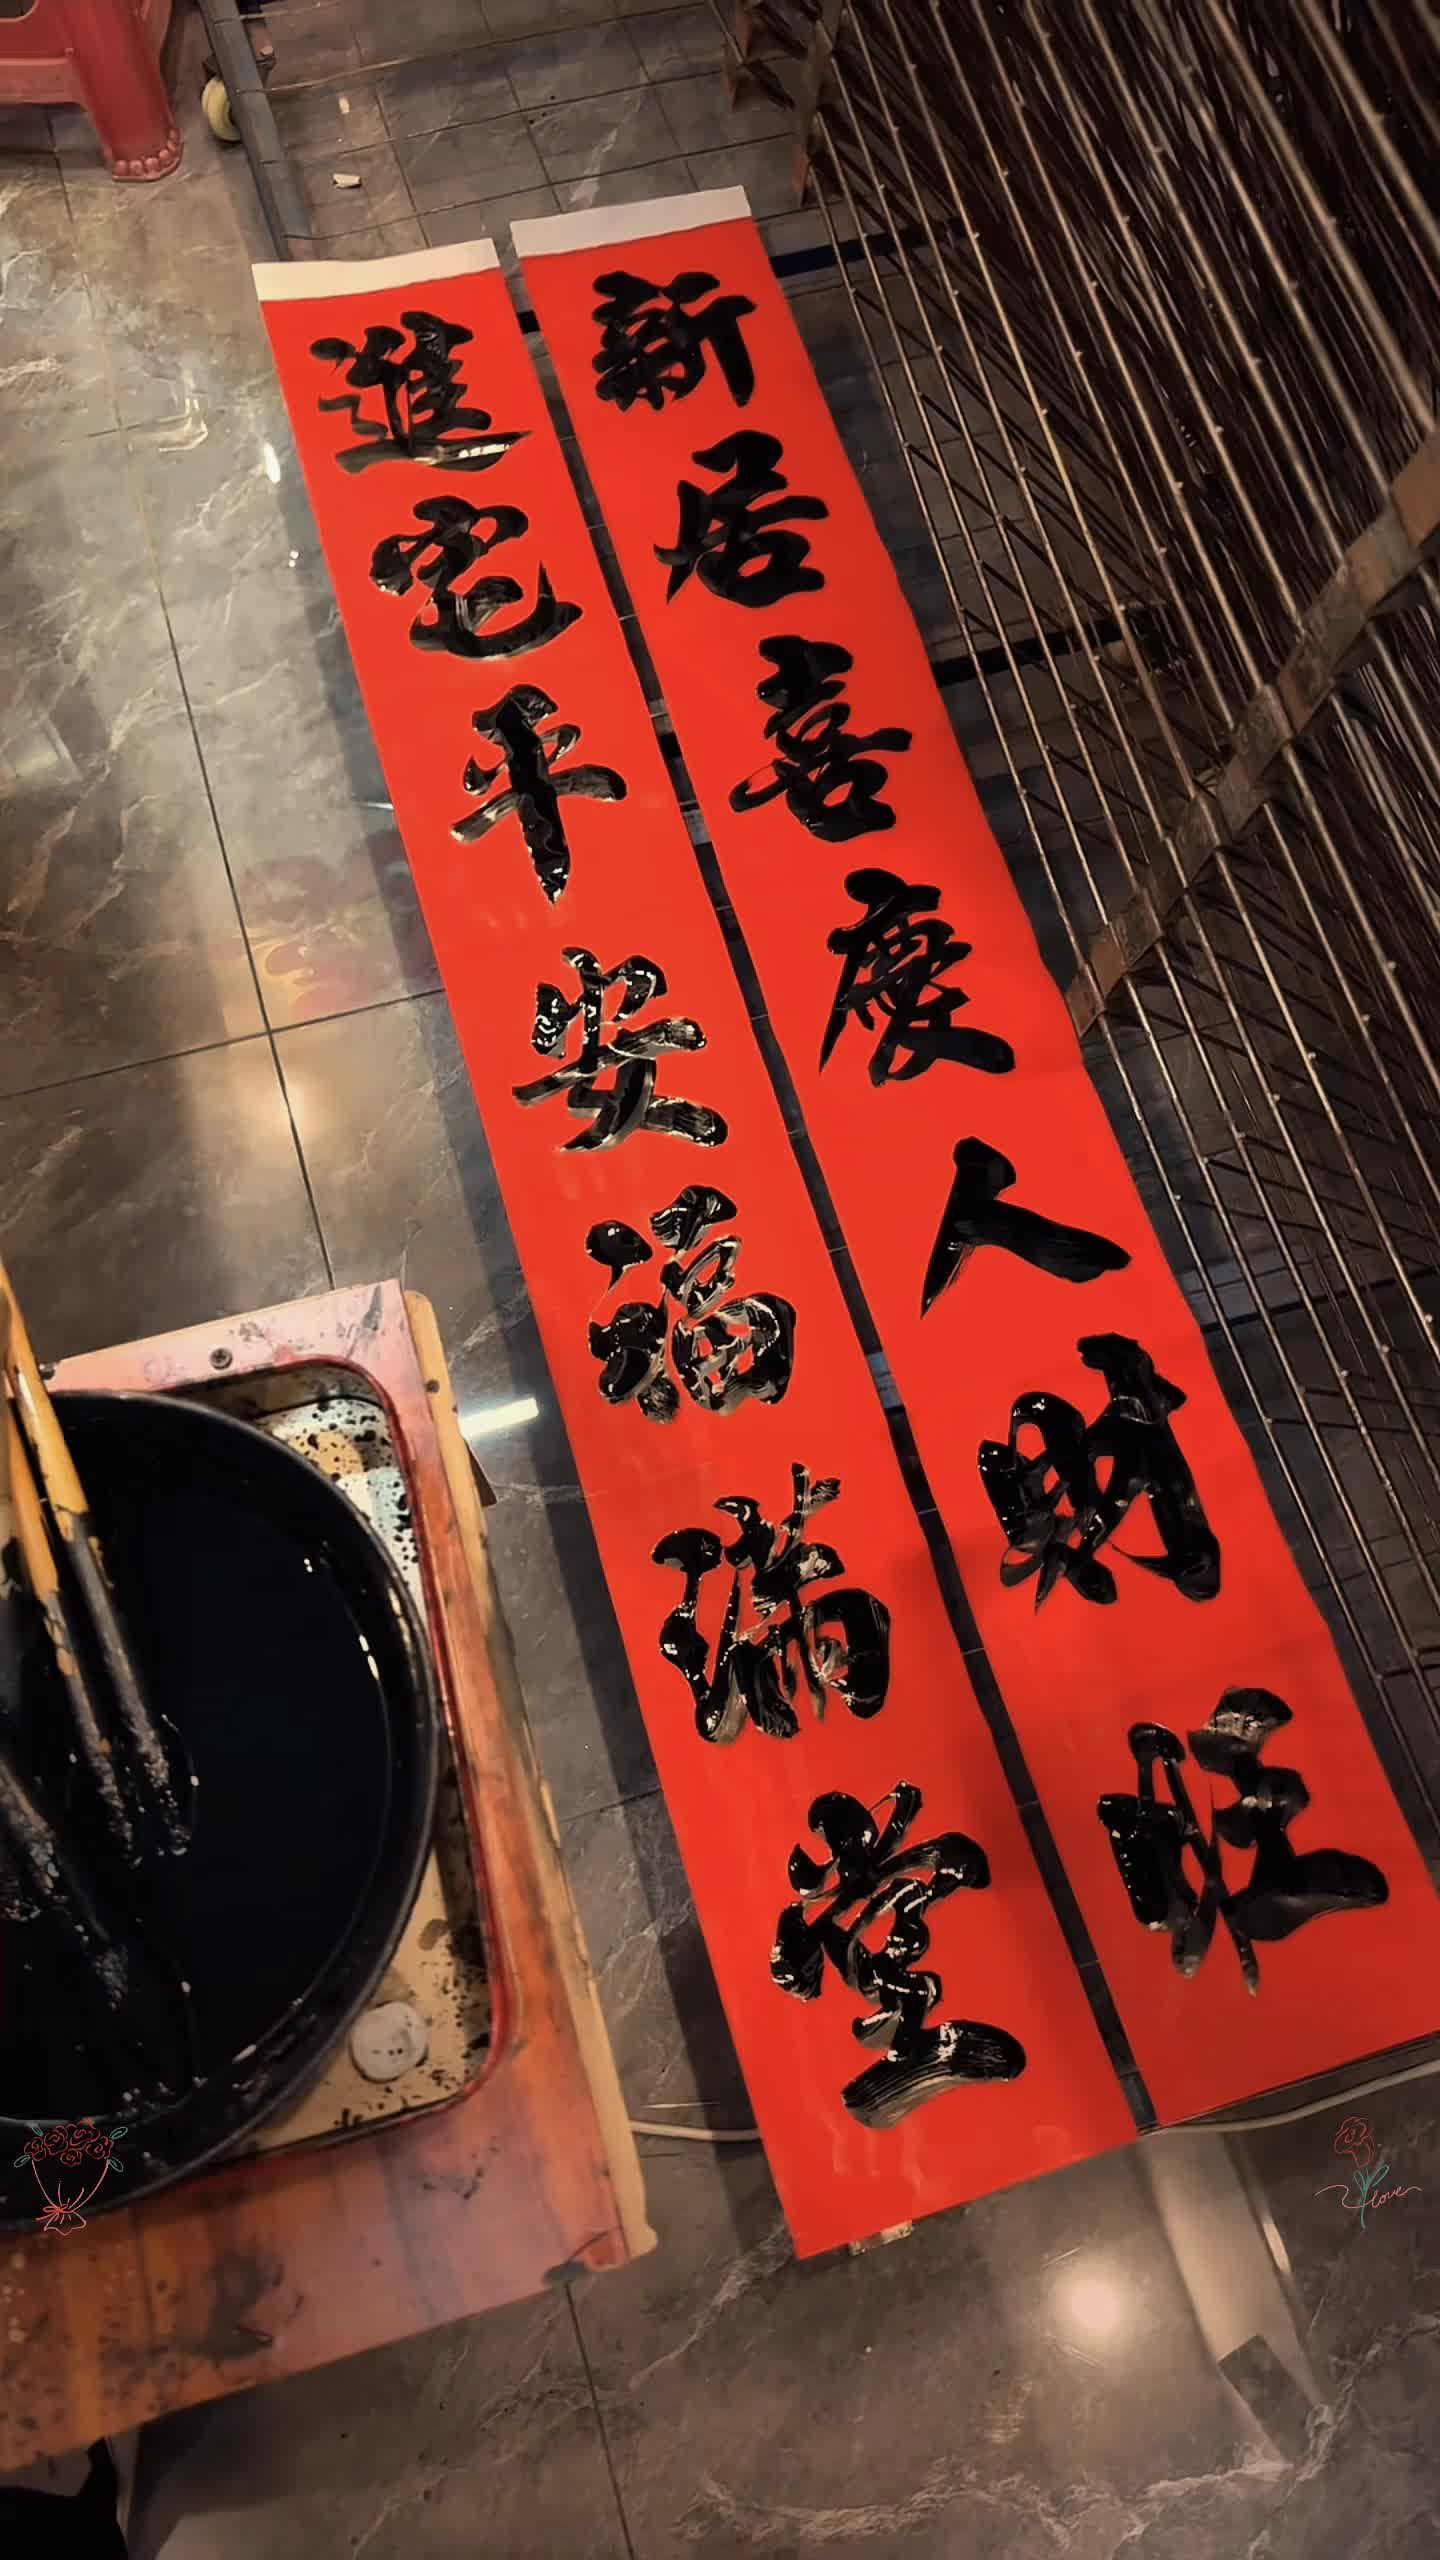 新居喜慶人財旺
進宅平安福滿堂
love